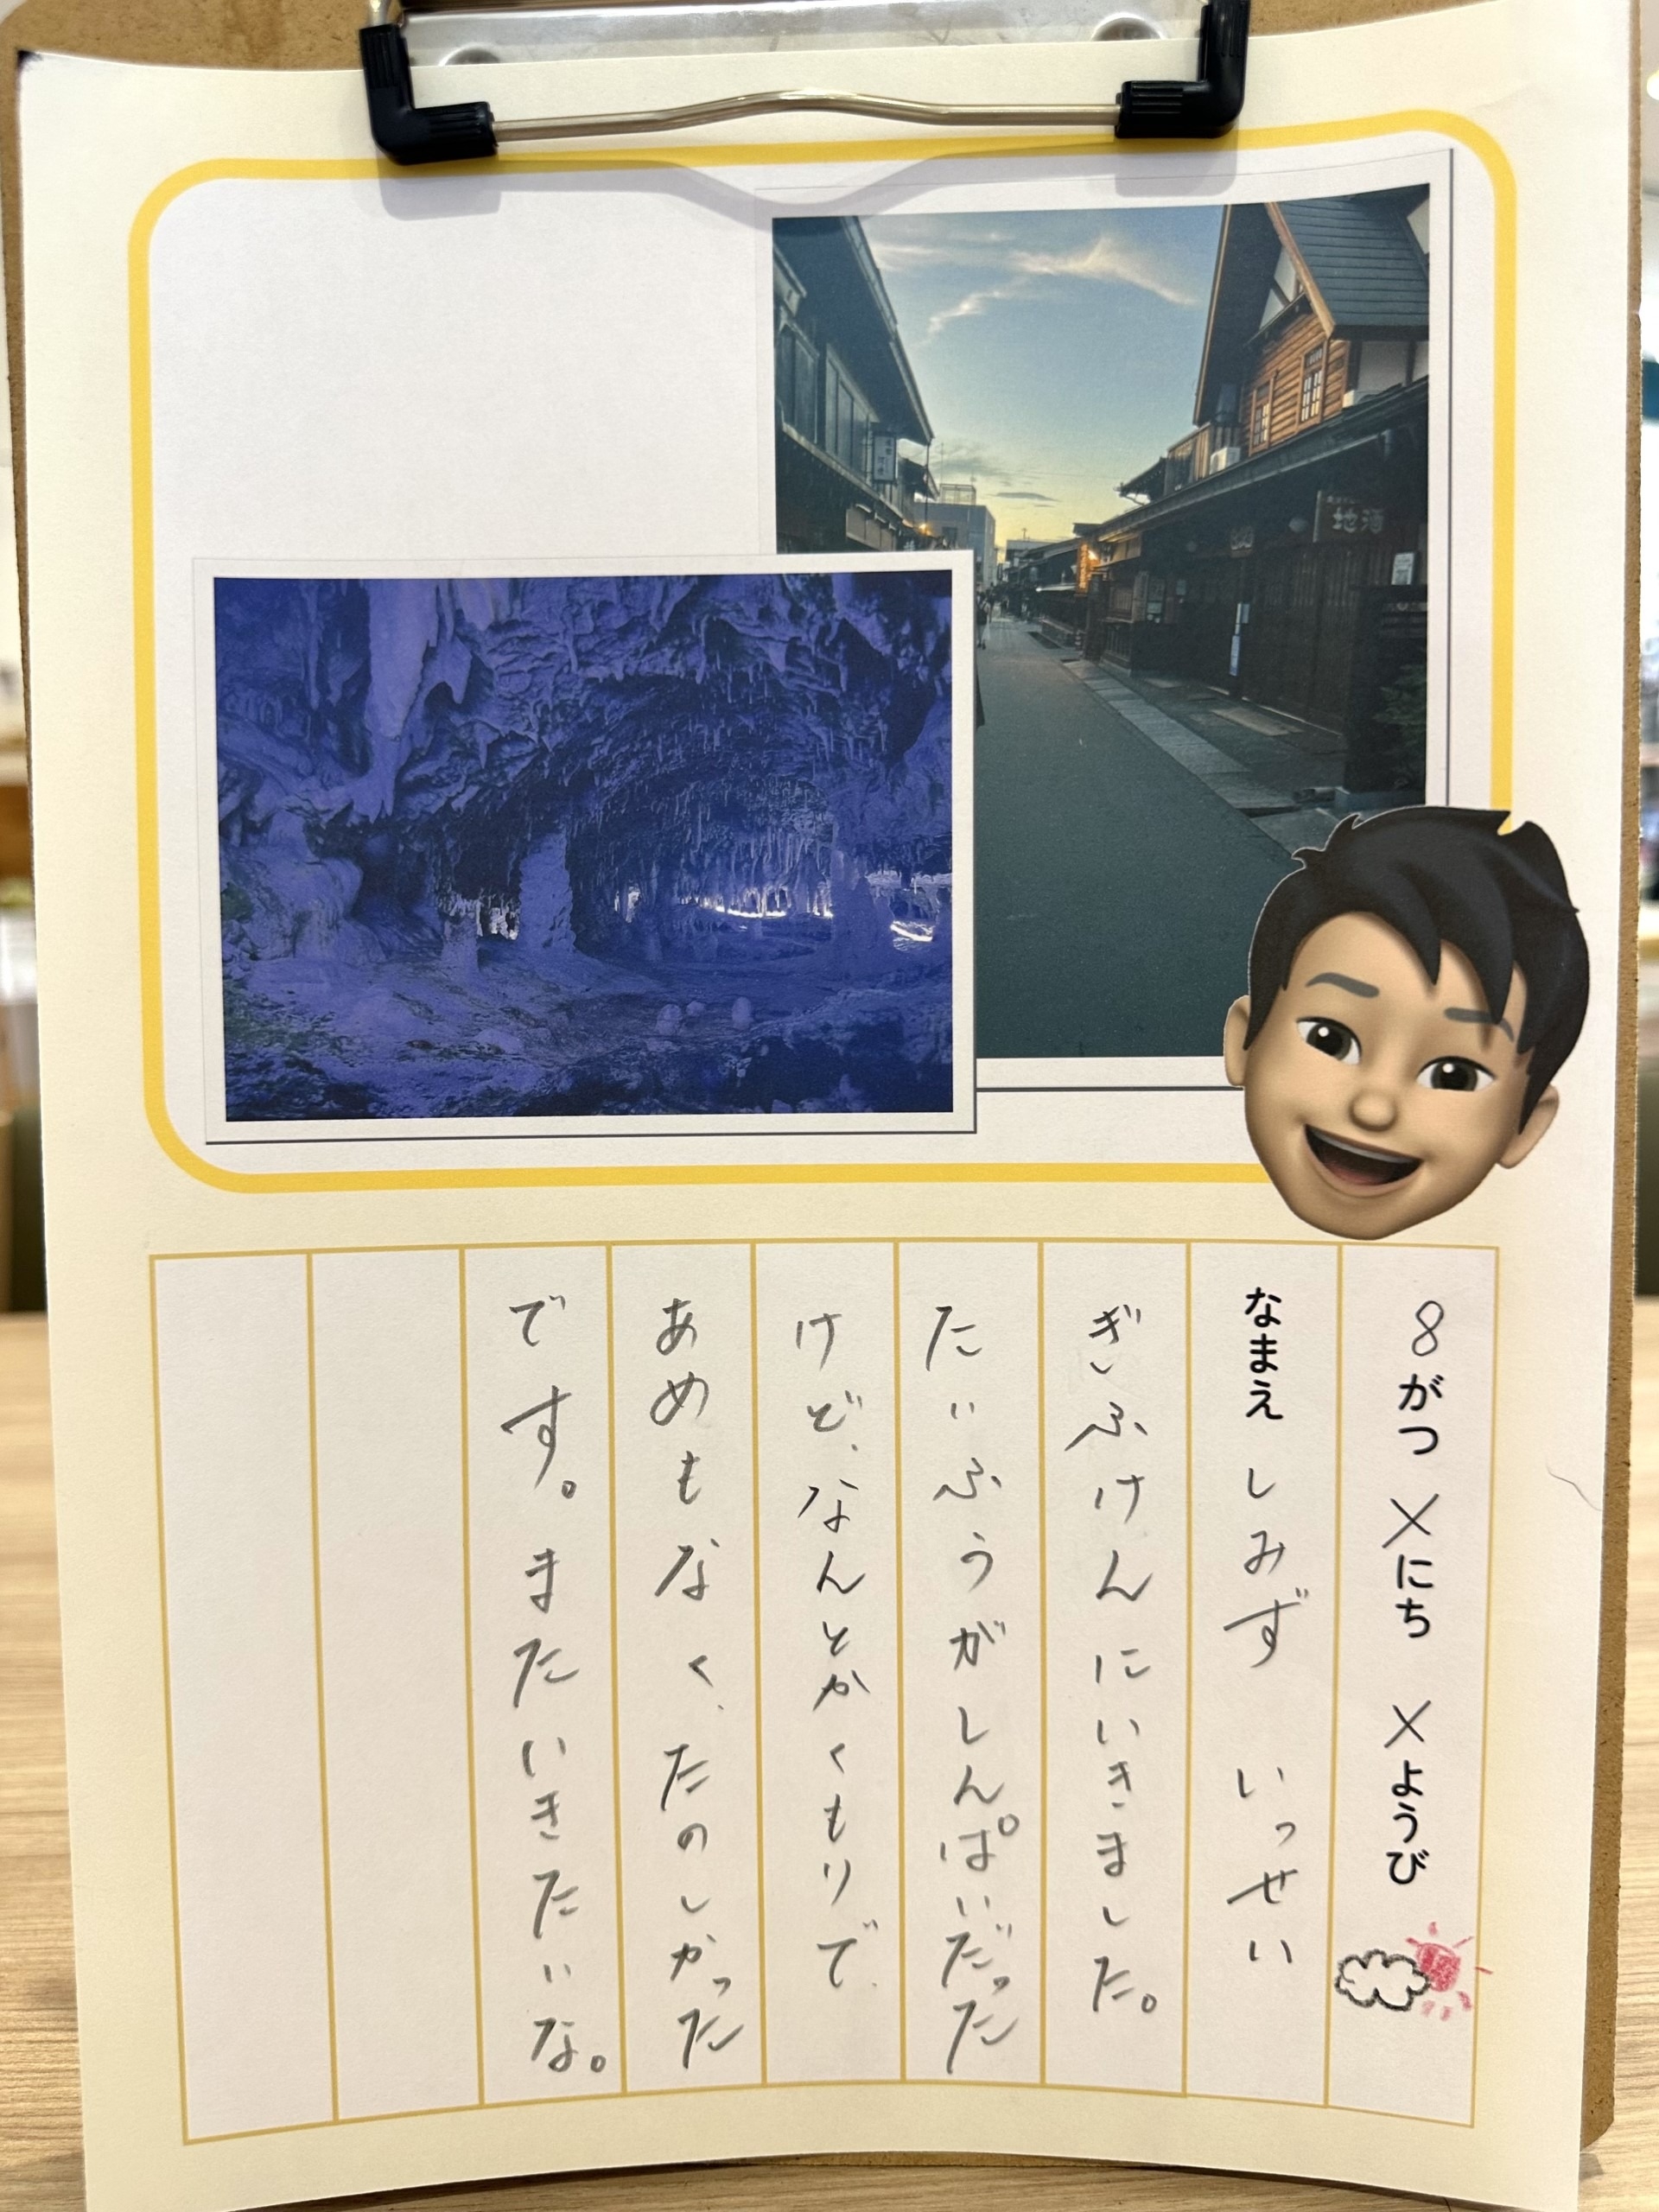 8がつ ×にち ×ようび
なまえ しみず いっせい
ぎふけんにいきました。
たいふうがしんぱいだった
けど、なんとかくもりで、
あめもなく、たのしかった
です。またいきたいな。
地酒